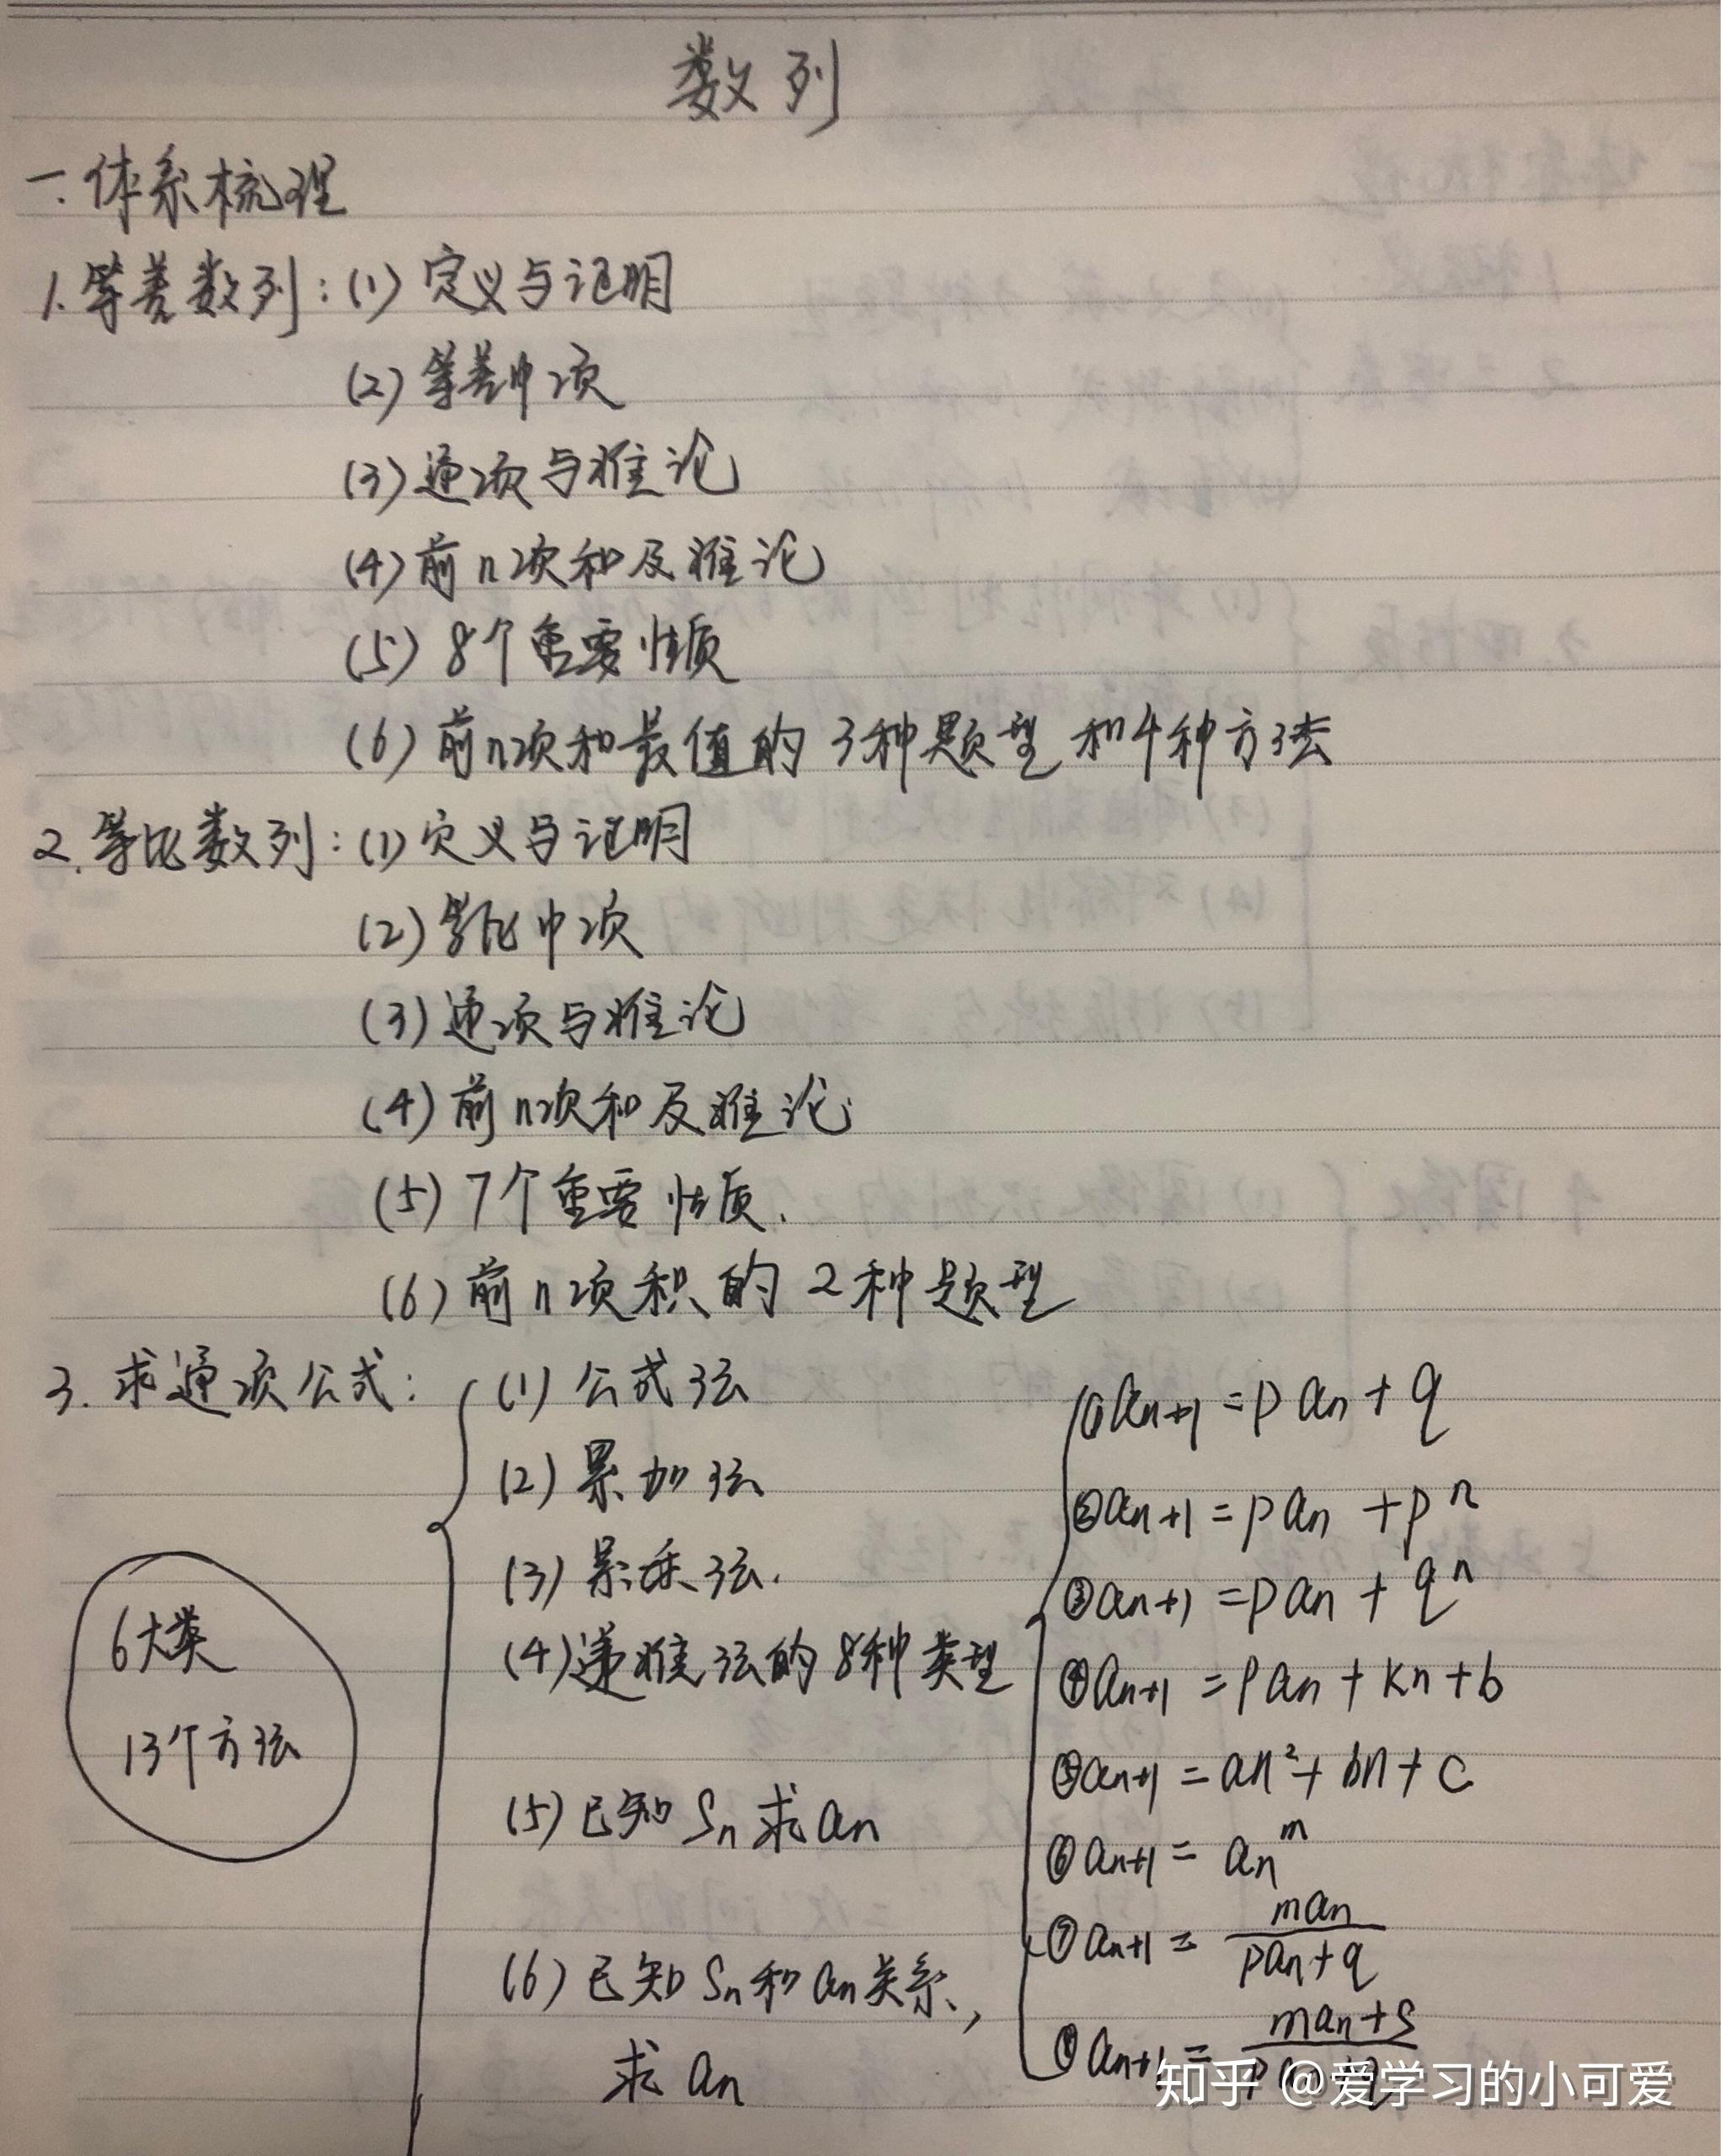 数列
一.体系梳理
1.等差数列:(1)定义与证明
(2)等差中项
(3)通项与推论
(4)前n项和及推论
(5)8个重要性质
(6)前n项和最值的3种题型和4种方法
2.等比数列:(1)定义与证明
(2)等比中项
(3)通项与推论
(4)前n项和及推论
(5)7个重要性质.
(6)前n项积的2种题型
3.求通项公式:
6大类
13个方法
(1)公式法
(2)累加法
(3)累乘法.
(4)递推法的8种类型
①an+1=pan+q
②an+1=pan+pⁿ
③an+1=pan+qⁿ
④an+1=pan+kn+b
⑤an+1=an²+bn+c
⑥an+1=anᵐ
⑦an+1=man/pan+q
⑧an+1=man+s
(5)已知Sn求an
(6)已知Sn和an关系,
求an
知乎 @爱学习的小可爱